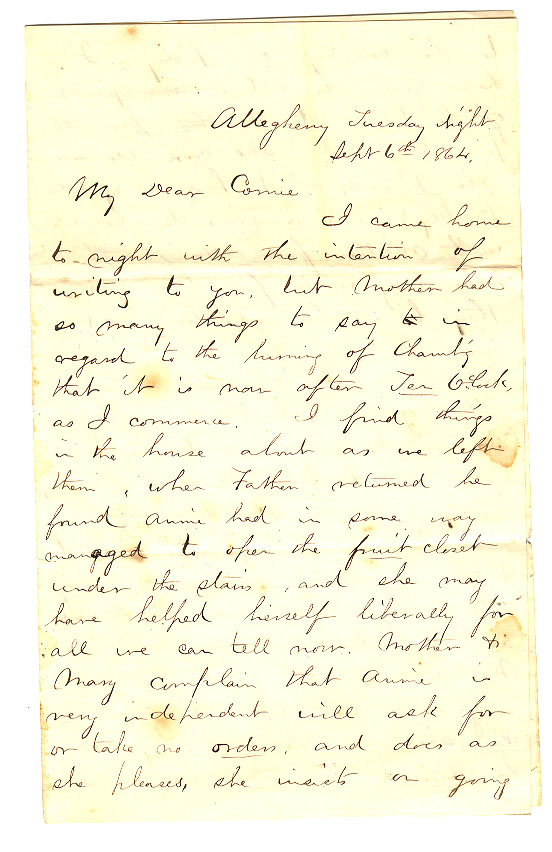 Allegheny Tuesday night
Sept 6th 1864.
My Dear Connie
I came home
to-night with the intention of
writing to you, but Mother had
so many things to say in
regard to the burning of Chamb'g
that it is now after Ten O'Clock,
as I commence. I find things
in the house about as we left
them, when Father returned he
found Annie had in some way
managed to open the fruit closet
under the stairs, and she may
have helped herself liberally for
all we can tell now. Mother &
Mary complain that Annie is
very independent will ask for
or take no orders, and does as
she pleases, she insists on going